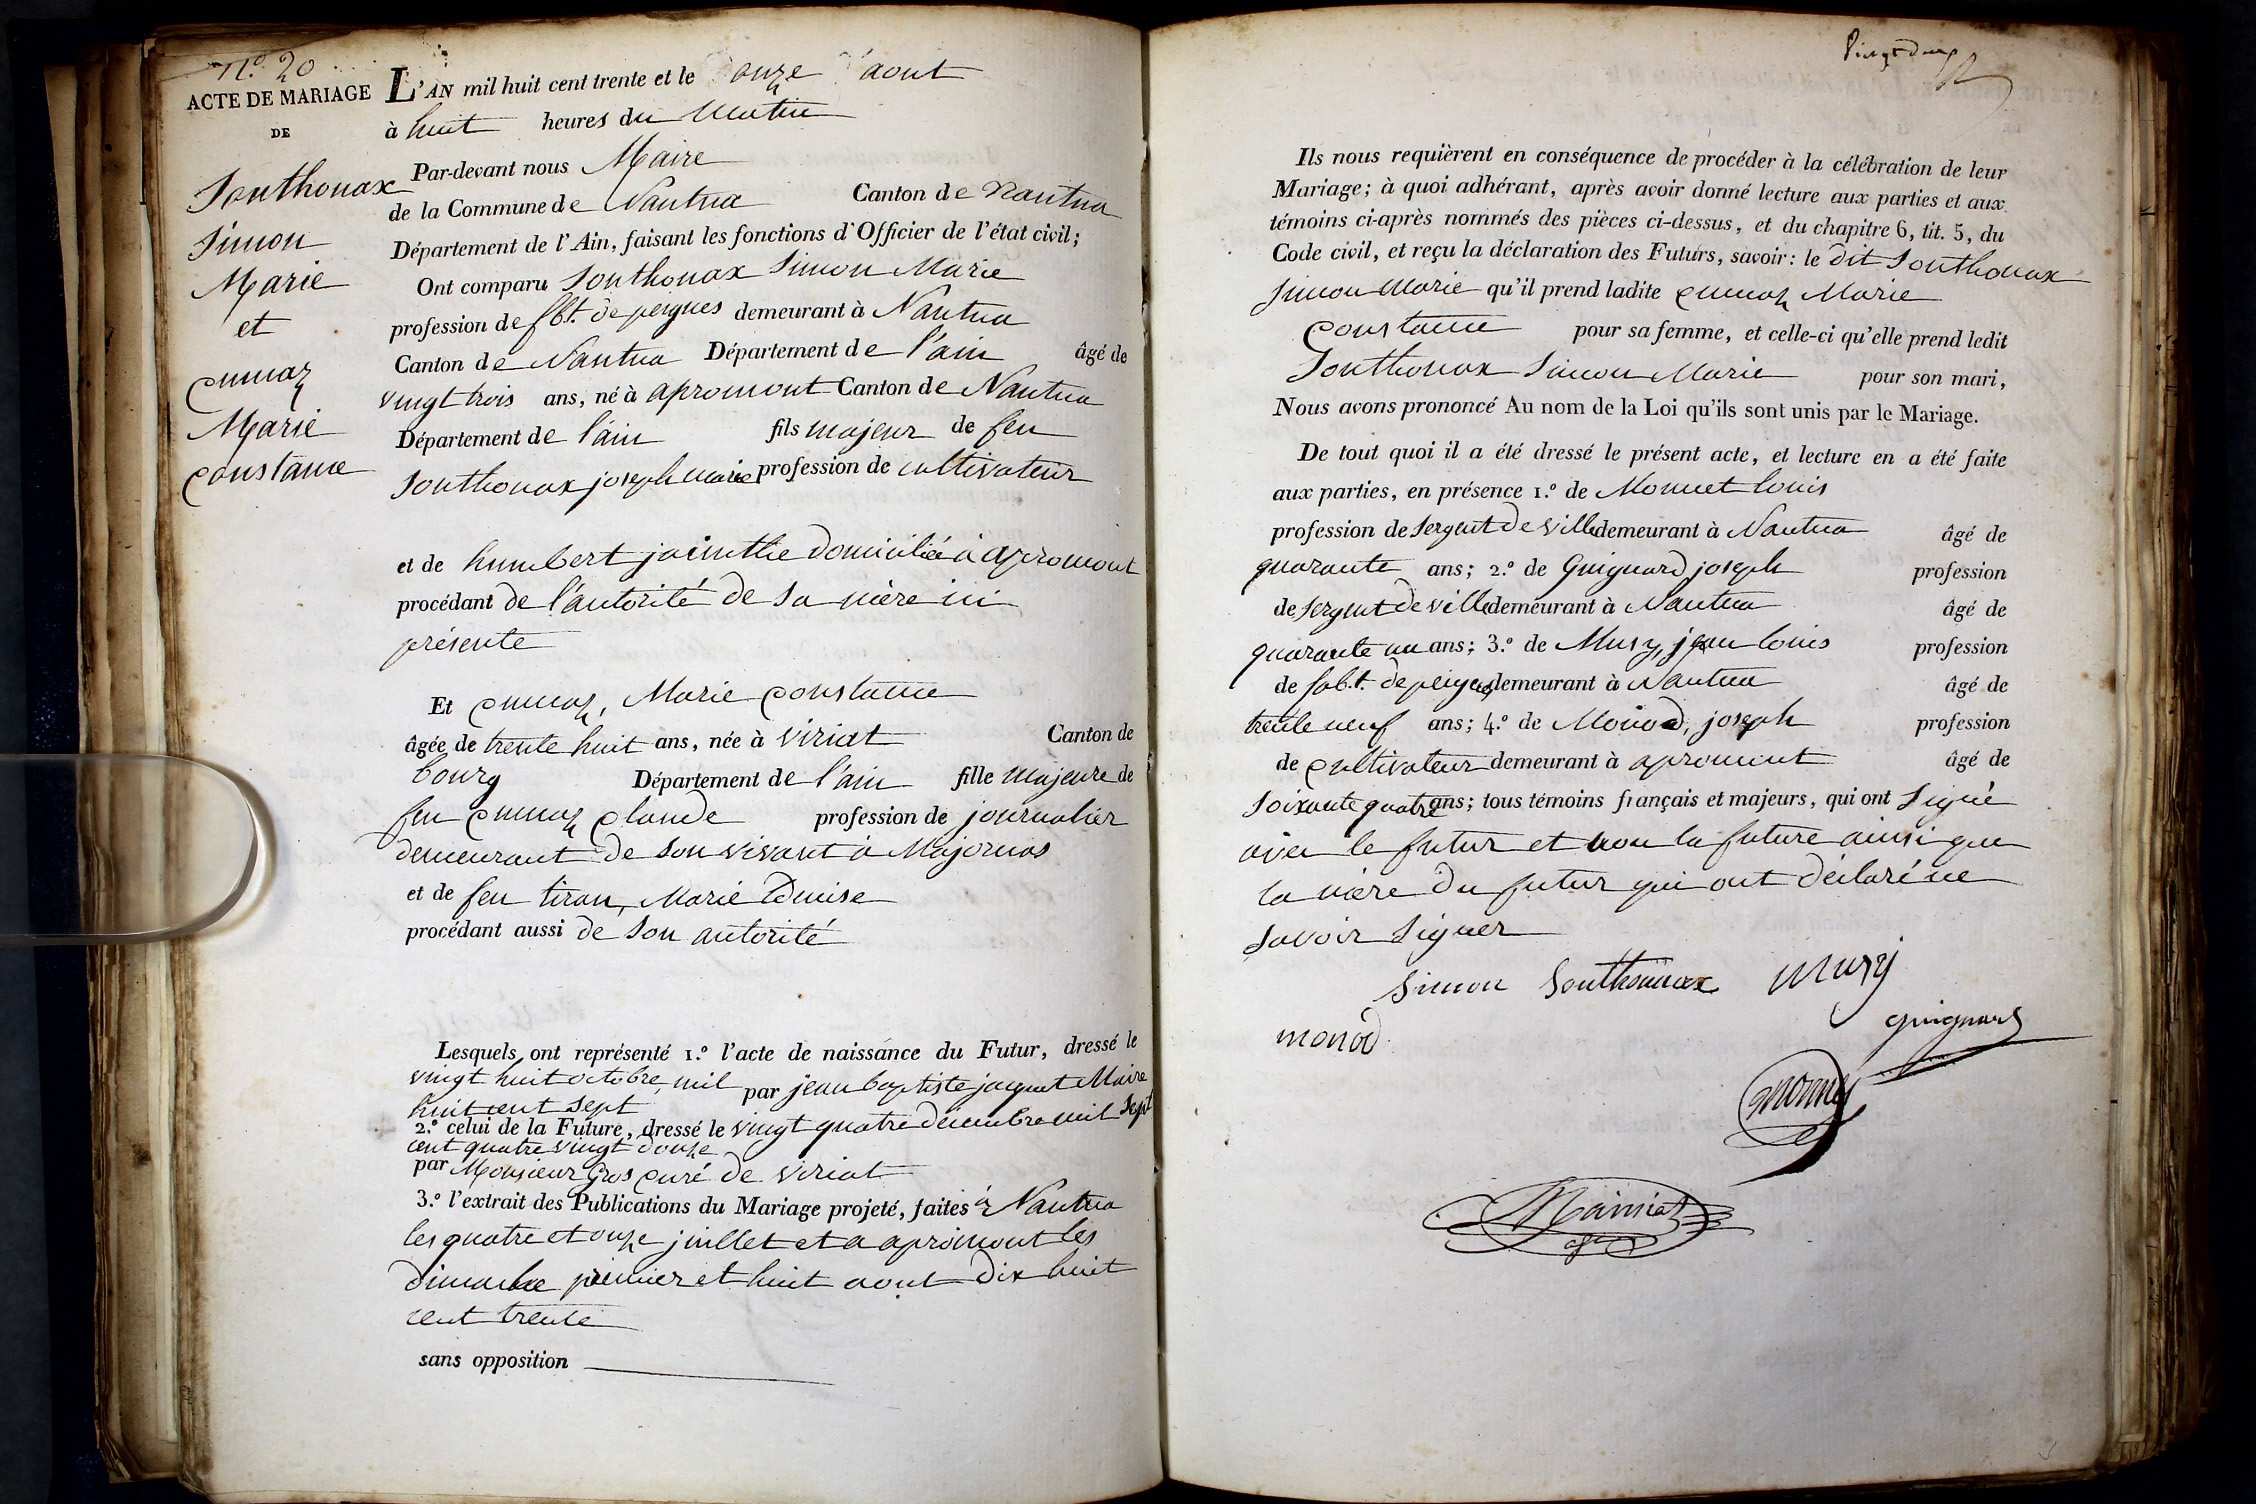 n.o 20
ACTE DE MARIAGE
DE
Sonthonax
Simon
Marie
et
Cunnaz
Marie
Constance
L'AN mil huit cent trente et le onze aout
à huit heures du Matin
Par-devant nous Maire
de la Commune de Nantua Canton de Nantua
Département de l'Ain, faisant les fonctions d'Officier de l'état civil;
Ont comparu Sonthonax Simon Marie
profession de fbt. de peignes demeurant à Nantua
Canton de Nantua Département de l'ain âgé de
vingt trois ans, né à apromont Canton de Nantua
Département de l'ain fils majeur de feu
Sonthonax joseph marie profession de cultivateur
et de humbert jacinthe domiciliée à apromont
procédant de l'autorité de sa mère ici
présente
Et Cunnaz, Marie Constance
âgée de trente huit ans, née à viriat Canton de
bourg Département de l'ain fille majeure de
feu Cunnaz Claude profession de journalier
demeurant de son vivant à Majornas
et de feu tiran, Marie Denise
procédant aussi de son autorité
Lesquels ont représenté 1.o l'acte de naissance du Futur, dressé le
vingt huit octobre mil par jean baptiste jacquet Maire
huit cent sept
2.o celui de la Future, dressé le vingt quatre décembre mil sept
cent quatre vingt douze
par Monsieur Gros Curé de viriat
3.o l'extrait des Publications du Mariage projeté, faites à Nantua
les quatre et onze juillet et a apromont les
dimanche premier et huit aout dix huit
cent trente
sans opposition
Ils nous requièrent en conséquence de procéder à la célébration de leur
Mariage; à quoi adhérant, après avoir donné lecture aux parties et aux
témoins ci-après nommés des pièces ci-dessus, et du chapitre 6, tit. 5, du
Code civil, et reçu la déclaration des Futurs, savoir: le dit Sonthonax
Simon Marie qu'il prend ladite Cunnaz Marie
Constance pour sa femme, et celle-ci qu'elle prend ledit
Sonthonax Simon Marie pour son mari,
Nous avons prononcé Au nom de la Loi qu'ils sont unis par le Mariage.
De tout quoi il a été dressé le présent acte, et lecture en a été faite
aux parties, en présence 1.o de Monnet louis
profession de sergent de ville demeurant à Nantua âgé de
quarante ans; 2.o de Guignard joseph profession
de sergent de ville demeurant à Nantua âgé de
quarante un ans; 3.o de Musy, jean louis profession
de fabt. de peignes demeurant à Nantua âgé de
trente neuf ans; 4.o de Monod, joseph profession
de Cultivateur demeurant à apromont âgé de
soixante quatre ans; tous témoins français et majeurs, qui ont signé
avec le futur et non la future ainsi que
la mère du futur qui ont déclaré ne
savoir signer
Simon Sonthonax Musy
monod guignard
monnet